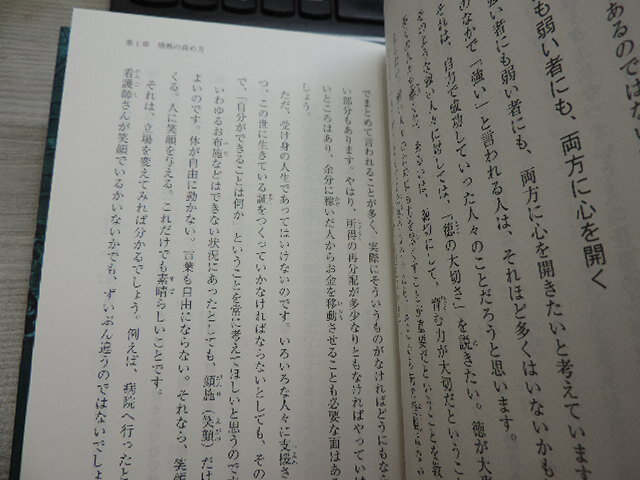 あるのではない
も弱い者にも、両方に心を開く
者にも弱い者にも、両方に心を開きたいと考えています
のなかで「強い」と言われる人は、それほど多くはいないかも
それは、自力で成功していった人々のことだろうと思います。
人々に対しては、「徳の大切さ」を説きたい。徳が大
にして、育む力が大切だということ
第1章 情熱の高め方
でまとめて言われることが多く、実際にそういうものがなければどうにもなら
い部分もあります。やはり、所得の再分配が多少なりともなければやってい
いところはあり、余分に稼いだ人からお金を移動させることも必要な面はあ
しょう。
ただ、受け身の人生であってはいけないのです。いろいろな人々に支援さ
つ、この世に生きている証をつくっていかなければならないとしても、その
で、「自分ができることは何か」ということを常に考えてほしいと思うので
いわゆるお布施などはできない状況にあったとしても、顔施(笑顔)だけ
よいのです。体が自由に動かない。言葉も自由にならない。それなら、笑
くる。人に笑顔を与える。これだけでも素晴らしいことです。
それは、立場を変えてみれば分かるでしょう。例えば、病院へ行ったと
看護師さんが笑顔でいるかいないかでも、ずいぶん違うのではないでしょ